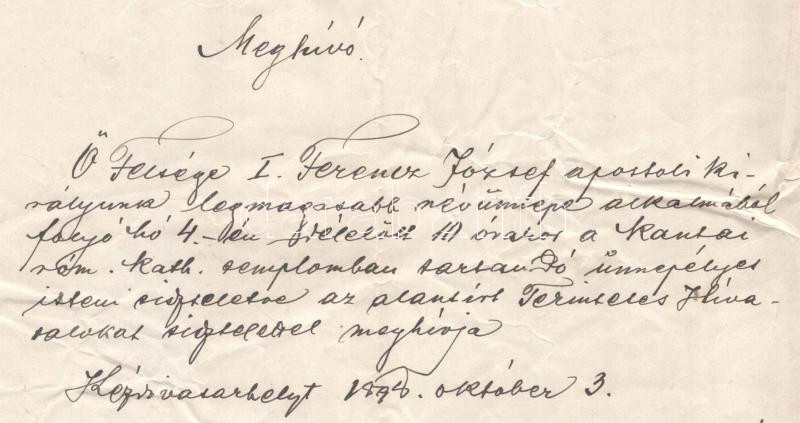 Meghívó.
Ő Felsége I. Ferencz József apostoli ki-
rályunk legmagasabb névünnepe alkalmából
folyó hó 4.-én délelőtt 10 órakor a Kantai
róm. kath. templomban tartandó ünnepélyes
isteni tiszteletre az alantírt Tekintetes Hiva-
talokat tisztelettel meghívja
Kézdivásárhelyt október 3.